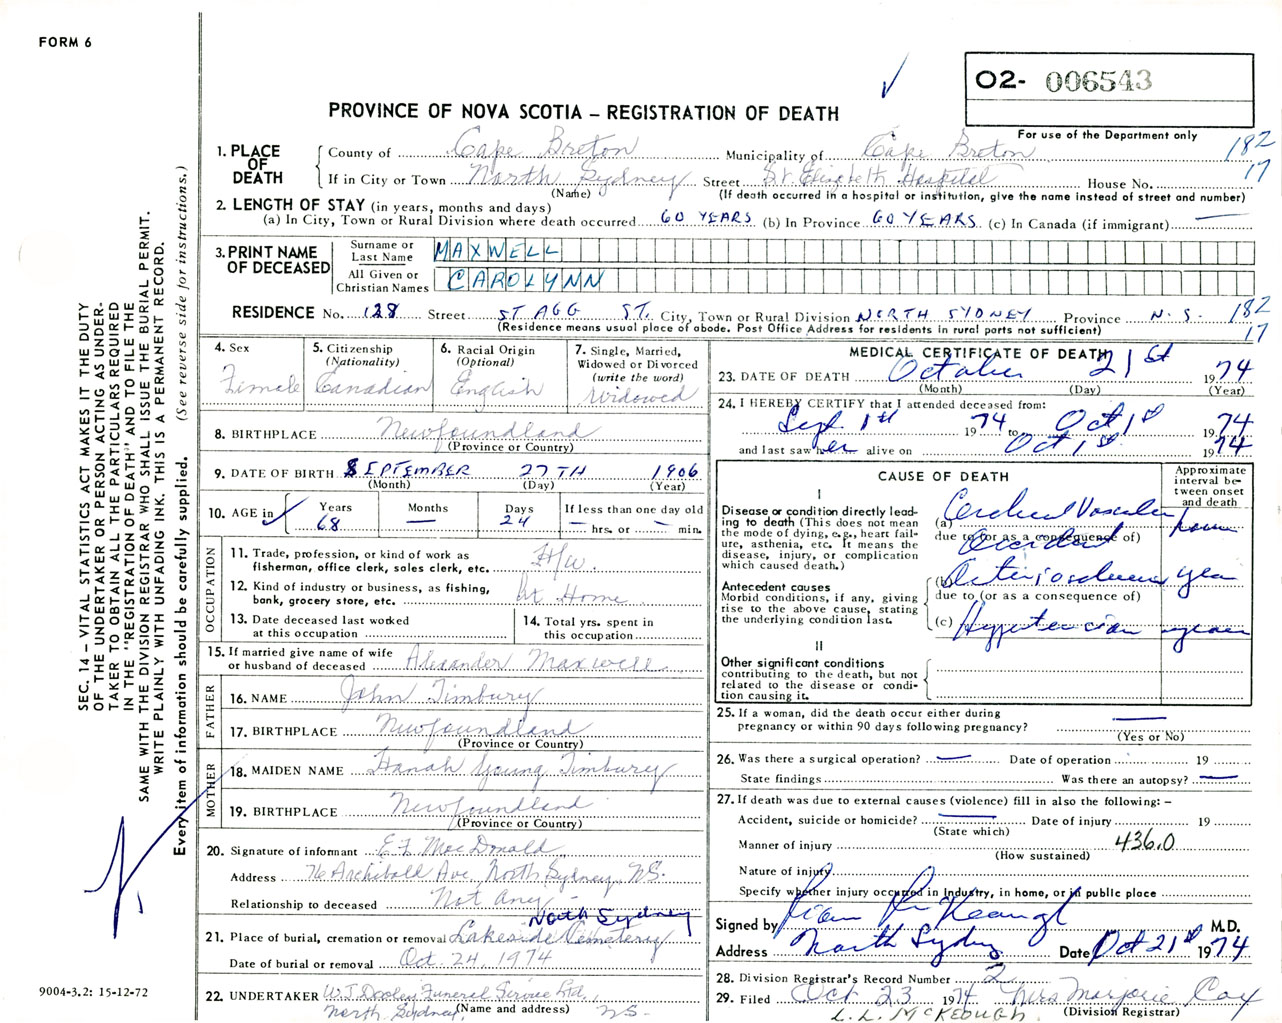 FORM 6
O2- 006543
For use of the Department only
PROVINCE OF NOVA SCOTIA – REGISTRATION OF DEATH
1. PLACE OF DEATH County of Cape Breton Municipality of Cape Breton 182
If in City or Town North Sydney Street St. Elizabeth Hospital House No. 17
(Name) (If death occurred in a hospital or institution, give the name instead of street and number)
2. LENGTH OF STAY (in years, months and days)
(a) In City, Town or Rural Division where death occurred 60 YEARS (b) In Province 60 YEARS (c) In Canada (if immigrant) —
3. PRINT NAME OF DECEASED
Surname or Last Name MAXWELL
All Given or Christian Names CAROLYNN
RESIDENCE No. 128 Street STAGG ST. City, Town or Rural Division NORTH SYDNEY Province N.S. 182
(Residence means usual place of abode. Post Office Address for residents in rural parts not sufficient) 17
4. Sex Female
5. Citizenship (Nationality) Canadian
6. Racial Origin (Optional) English
7. Single, Married, Widowed or Divorced (write the word) Widowed
8. BIRTHPLACE Newfoundland
(Province or Country)
9. DATE OF BIRTH SEPTEMBER 27TH 1906
(Month) (Day) (Year)
10. AGE in Years 68 Months — Days 24 If less than one day old — hrs. or — min.
OCCUPATION
11. Trade, profession, or kind of work as fisherman, office clerk, sales clerk, etc. H/W.
12. Kind of industry or business, as fishing, bank, grocery store, etc. At Home
13. Date deceased last worked at this occupation
14. Total yrs. spent in this occupation
15. If married give name of wife or husband of deceased Alexander Maxwell
FATHER
16. NAME John Timbury
17. BIRTHPLACE Newfoundland
(Province or Country)
MOTHER
18. MAIDEN NAME Hanah Young Timbury
19. BIRTHPLACE Newfoundland
(Province or Country)
20. Signature of informant E.F. MacDonald
Address 76 Archibald Ave, North Sydney, N.S.
Relationship to deceased Not Any -
North Sydney
21. Place of burial, cremation or removal Lakeside Cemetery
Date of burial or removal Oct. 24, 1974
22. UNDERTAKER W.J. Dooley Funeral Service Ltd.,
North Sydney, (Name and address) NS-
MEDICAL CERTIFICATE OF DEATH
23. DATE OF DEATH October 21st 1974
(Month) (Day) (Year)
24. I HEREBY CERTIFY that I attended deceased from:
Sept 1st 1974 to Oct 1st 1974
and last saw her alive on Oct 1st 1974
CAUSE OF DEATH
Approximate interval between onset and death
I
Disease or condition directly leading to death (This does not mean the mode of dying, e.g., heart failure, asthenia, etc. It means the disease, injury, or complication which caused death.)
(a) Cerebral Vascular
due to (or as a consequence of)
Accident
Antecedent causes
Morbid conditions, if any, giving rise to the above cause, stating the underlying condition last.
(b)
due to (or as a consequence of)
(c) Hypertension years
II
Other significant conditions contributing to the death, but not related to the disease or condition causing it.
25. If a woman, did the death occur either during pregnancy or within 90 days following pregnancy? —
(Yes or No)
26. Was there a surgical operation? — Date of operation 19
State findings Was there an autopsy? —
27. If death was due to external causes (violence) fill in also the following: –
Accident, suicide or homicide? — Date of injury 19
(State which)
Manner of injury 436.0
(How sustained)
Nature of injury
Specify whether injury occurred in Industry, in home, or in public place
Signed by M.D.
Address North Sydney Date Oct 21st 1974
28. Division Registrar's Record Number 2
29. Filed Oct 23 1974 Mrs Marjorie Cox
L.L. McKEOUGH. (Division Registrar)
SEC. 14 – VITAL STATISTICS ACT MAKES IT THE DUTY
OF THE UNDERTAKER OR PERSON ACTING AS UNDER-
TAKER TO OBTAIN ALL THE PARTICULARS REQUIRED
IN THE "REGISTRATION OF DEATH" AND TO FILE THE
SAME WITH THE DIVISION REGISTRAR WHO SHALL ISSUE THE BURIAL PERMIT.
WRITE PLAINLY WITH UNFADING INK. THIS IS A PERMANENT RECORD.
Every item of information should be carefully supplied. (See reverse side for instructions.)
9004-3.2: 15-12-72